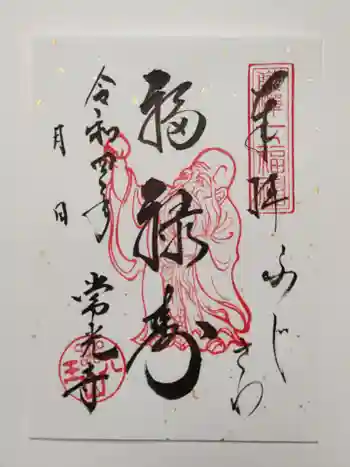 奉拝
ふじさわ
福禄寿
令和四年
月 日
常光寺